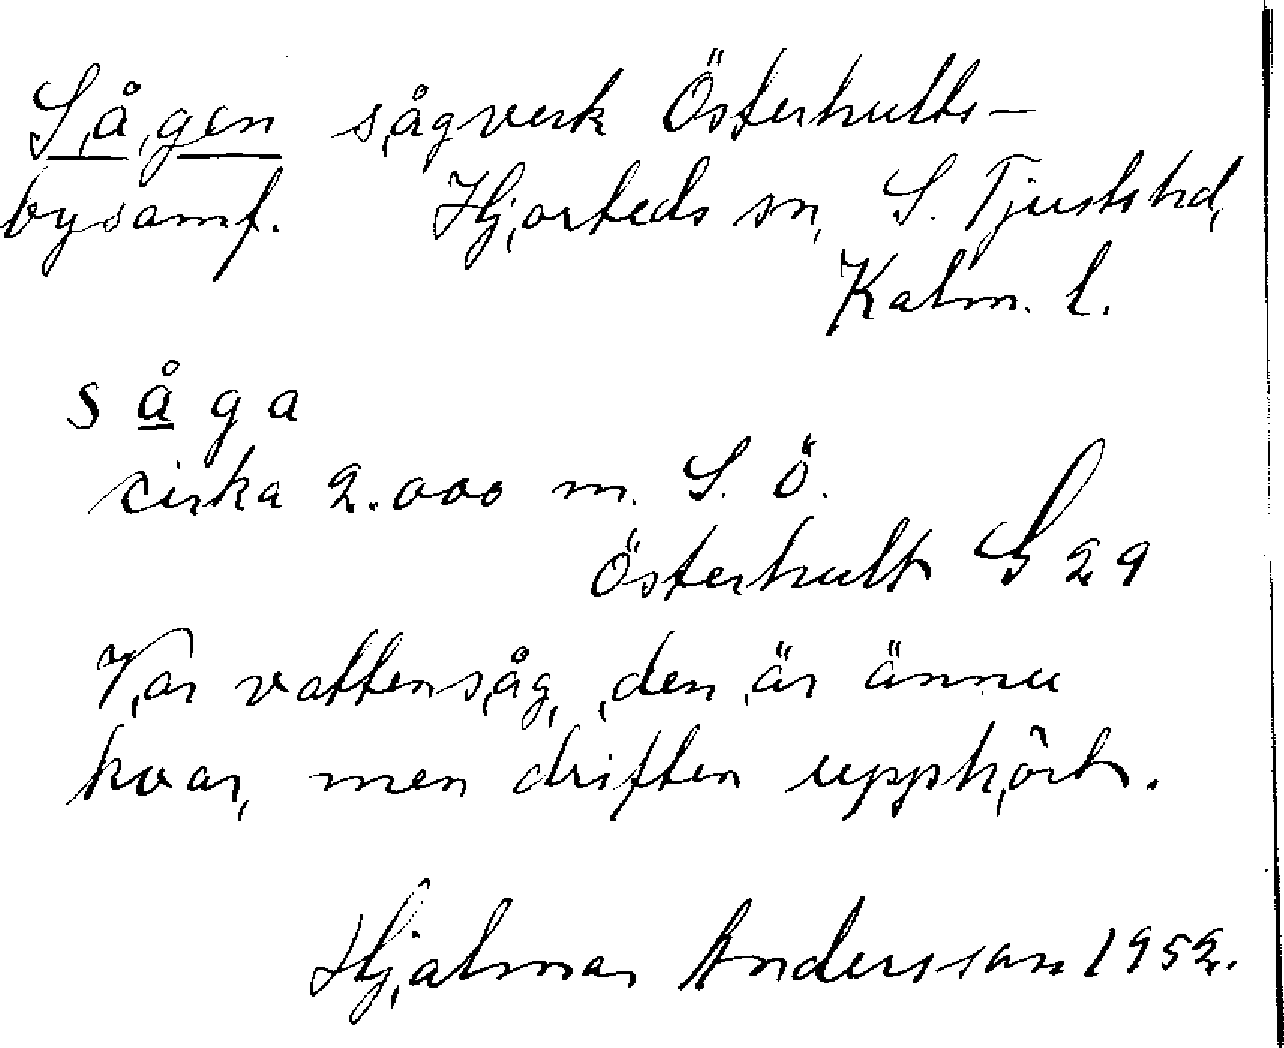 Sågen sågverk Österhults-
bysamf. Hjorteds sn, S. Tjusts hd,
Kalm. l.
såga
cirka 2.000 m. S. Ö.
Österhult S 29
Var vattensåg, den är ännu
kvar, men driften upphört.
Hjalmar Andersson 1952.